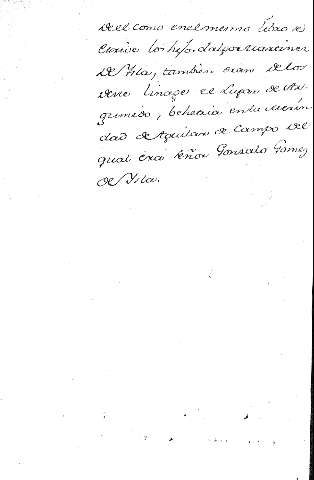 de el como en el mesmo Libro se
escrive los hijos dalgo
de Ysla, tambien eran de los
deste linage, el Lugar de
, behetria en la Merin
dad de Aguilar de Campo del
qual era señor Gonzalo Gomez
de Ysla.